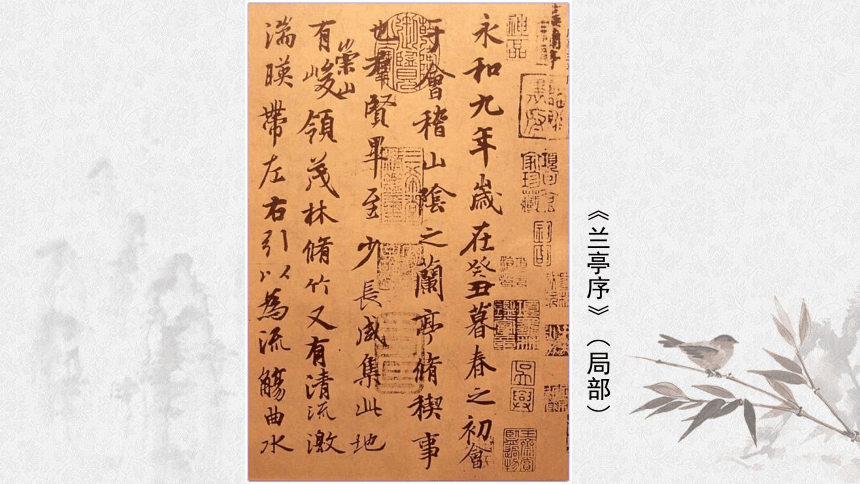 永和九年歲在癸丑暮春之初會
于會稽山陰之蘭亭脩稧事
也羣賢畢至少長咸集此地
有崇山峻領茂林脩竹又有清流激
湍暎帶左右引以為流觴曲水
《兰亭序》（局部）